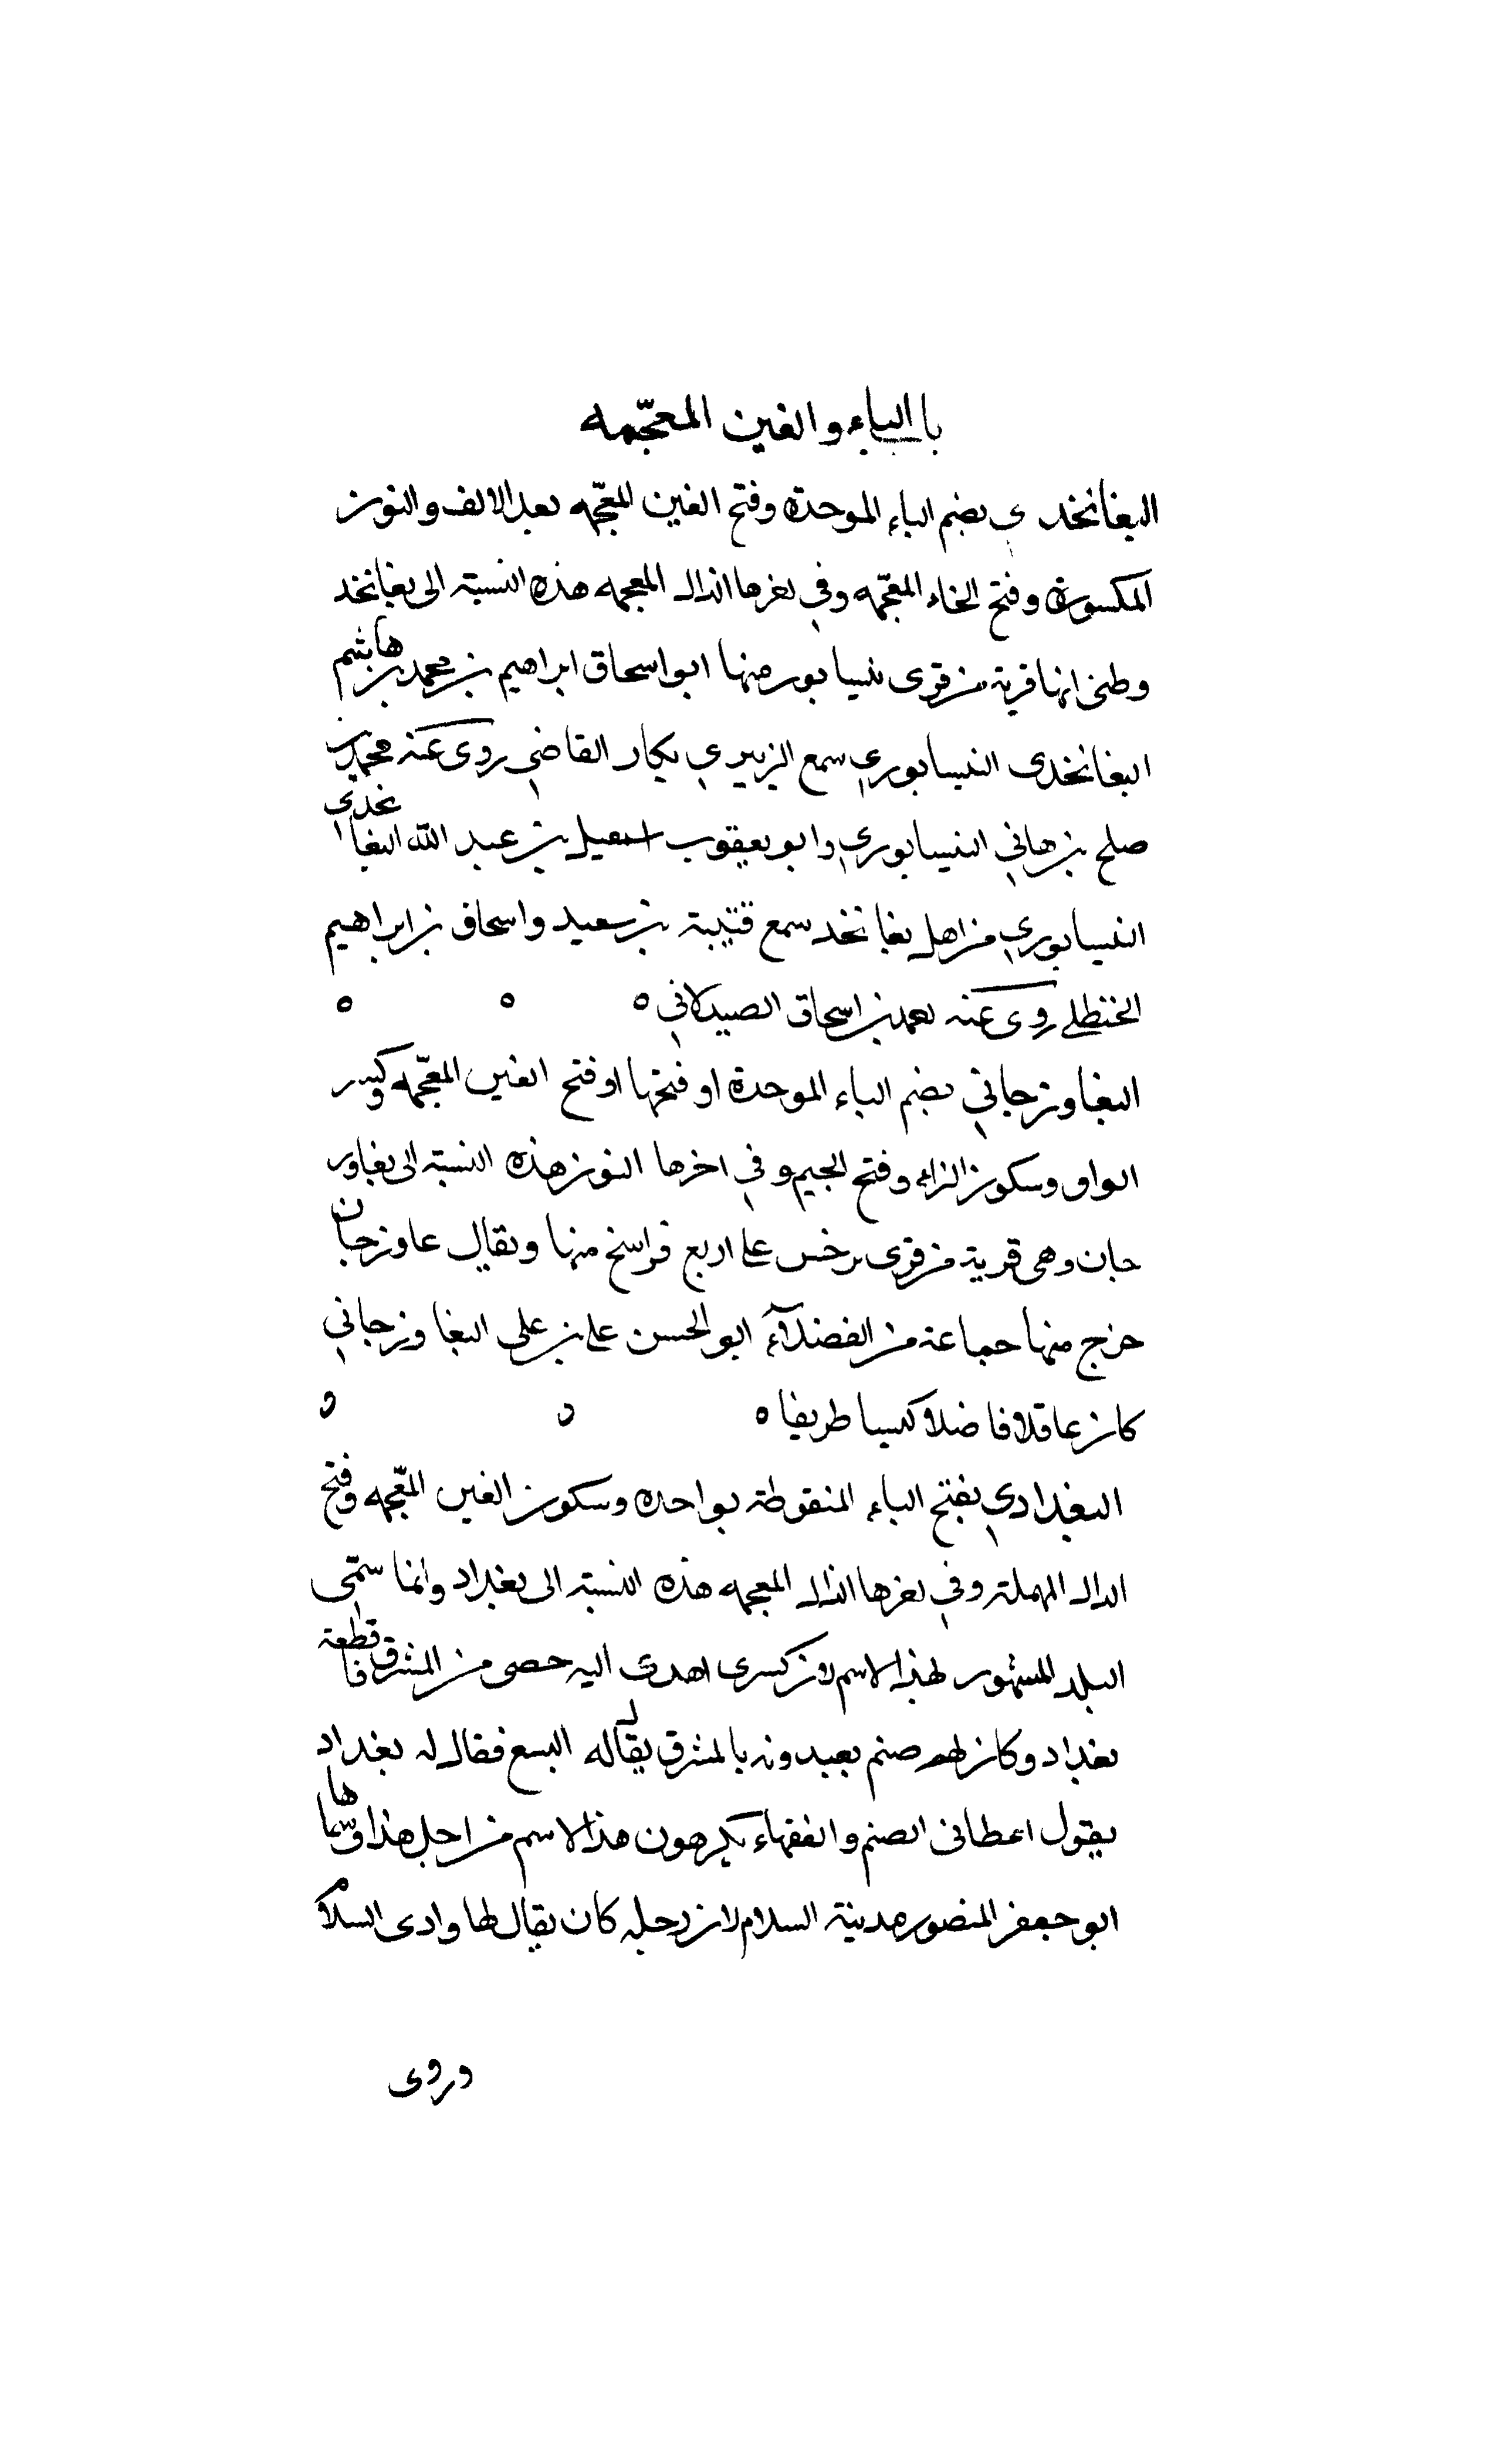 باب الباء والغين المعجمه
البغانخذي بضم الباء الموحدة وفتح الغين المعجمه بعد الالف والنون
المكسورة وفتح الخاء المعجمه وفي اخرها الذال المعجمه هذه النسبة الى بغانخذ
وظني انها قرية من قرى نيسابور منها ابو اسحاق ابراهيم بن محمد بن هاشم
البغانخذى النيسابوري سمع الزبير بن بكار القاضي روى عنه محمد بن
صلح بن هاني النيسابوري وابو يعقوب اسمعيل بن عبد الله البغانخذي
النيسابوري من اهل بغانخذ سمع قتيبة بن سعيد واسحاق بن ابراهيم
الحنظلي روى عنه محمد بن اسحاق الصيدلاني ه ه ه
البغاوزجاني بضم الباء الموحدة او فتحها او فتح الغين المعجمه وكسر
الواو وسكون الزاء وفتح الجيم وفي اخرها النون هذه النسبة الى بغاوز
جان وهي قرية من قرى سرخس على اربع فراسخ منها ويقال غاوزجان
خرج منها جماعة من الفضلآء ابو الحسن علي بن علي البغاوزجاني
كان عاقلا فاضلا كيسا ظريفا ه ه ه
البغدادي بفتح الباء المنقوطة بواحده وسكون الغين المعجمه وفتح
الدال المهملة وفي اخرها الذال المعجمه هذه النسبة الى بغداد وانما سمّي
البلد المشهور بهذا الاسم لان كسرى اهدى اليه خصى من المشرق فاقطعه
بغداد وكان لهم صنم يعبدونه بالمشرق يقال له البغ فقال له بغداد
يقول اعطاني الصنم والفقهاء يكرهون هذا الاسم من اجل هذا وسمّاها
ابو جعفر المنصور مدينة السلام لان دجله كان يقال لها وادى السلام
وروى